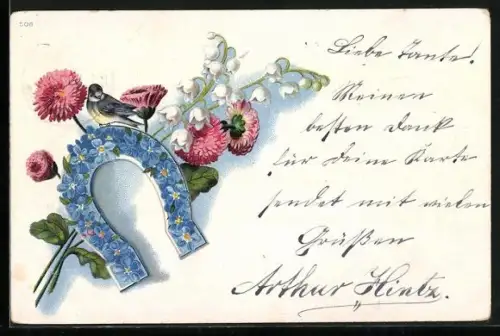 506
Liebe Tante!
Meinen
besten Dank
für Deine Karte
sendet mit vielen
Grüßen
Arthur Hintz.